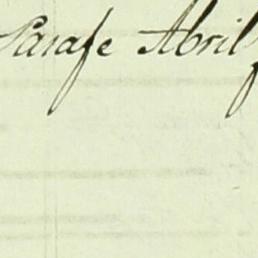 Parafe Abril